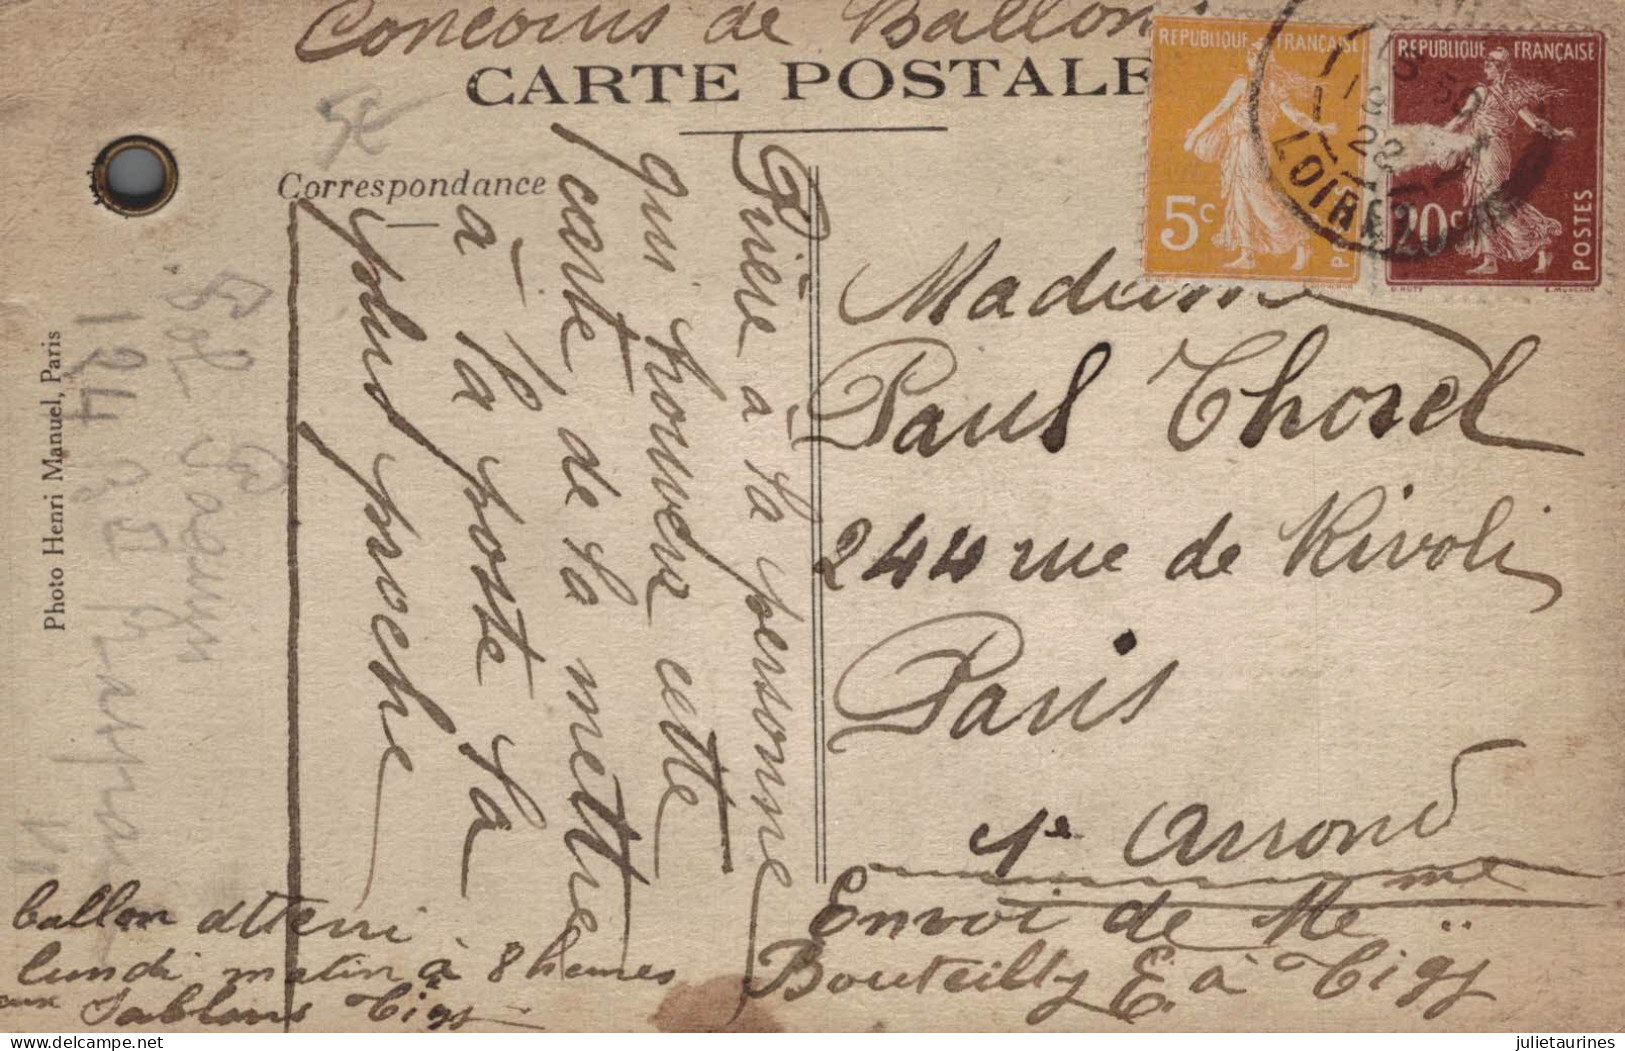 Concours de Ballon
CARTE POSTALE
REPUBLIQUE FRANÇAISE
5c
REPUBLIQUE FRANÇAISE
20c
POSTES
28
LOIRET
5€
Correspondance
Prière à la personne
qui trouvera cette
carte, de la mettre
à la poste la
plus proche
Madame
Paul Thorel
244 rue de Rivoli
Paris
1e Arrond
Envoi de Mme
Bouteilly E. à Tigy
ballon atterri
lundi matin à 8 heures
aux Sablons Tigy
Photo Henri Manuel, Paris
194
julietaurines